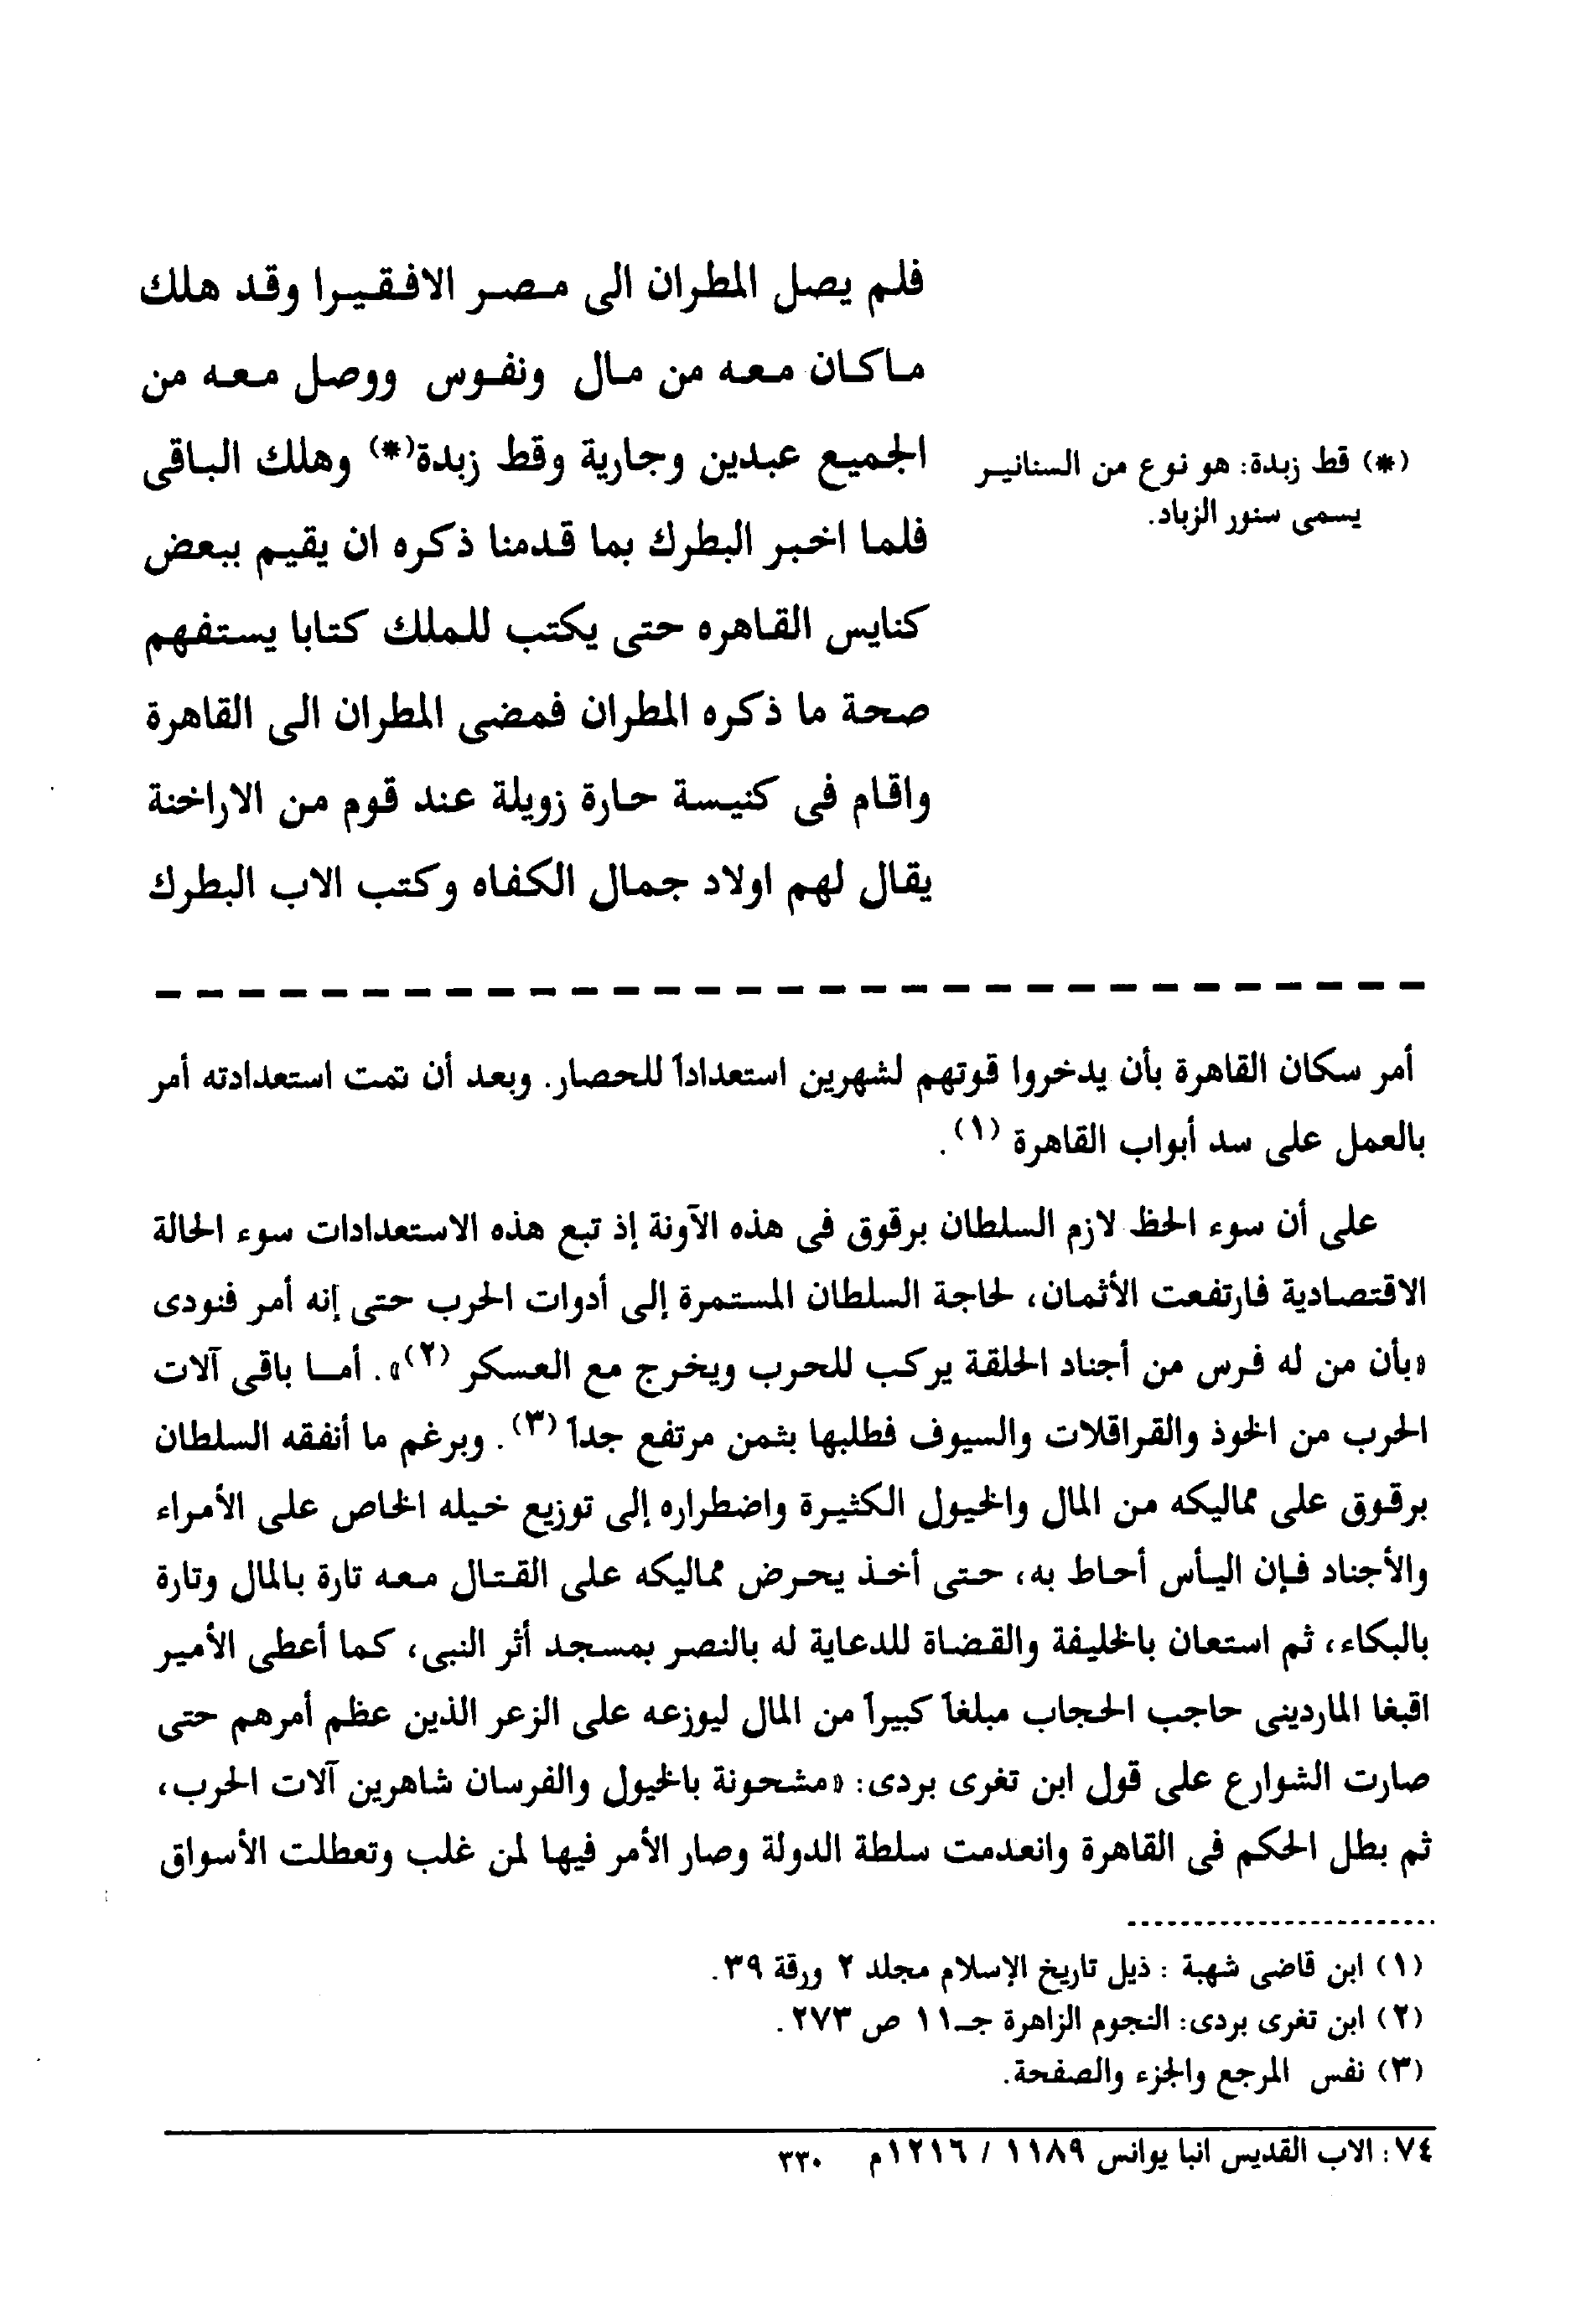 فلم يصل المطران الى مصر الافقيرا وقد هلك
ماكان معه من مال ونفوس ووصل معه من
الجميع عبدين وجارية وقط زبدة(*) وهلك الباقى
فلما اخبر البطرك بما قدمنا ذكره ان يقيم ببعض
كنايس القاهره حتى يكتب للملك كتابا يستفهم
صحة ما ذكره المطران فمضى المطران الى القاهرة
واقام فى كنيسة حارة زويلة عند قوم من الاراخنة
يقال لهم اولاد جمال الكفاه وكتب الاب البطرك
(*) قط زبدة: هو نوع من السنانير
يسمى سنور الزباد.
أمر سكان القاهرة بأن يدخروا قوتهم لشهرين استعداداً للحصار. وبعد أن تمت استعدادته أمر
بالعمل على سد أبواب القاهرة (١).
على أن سوء الحظ لازم السلطان برقوق فى هذه الآونة إذ تبع هذه الاستعدادات سوء الحالة
الاقتصادية فارتفعت الأثمان، لحاجة السلطان المستمرة إلى أدوات الحرب حتى إنه أمر فنودى
«بأن من له فرس من أجناد الحلقة يركب للحرب ويخرج مع العسكر (٢)». أما باقى آلات
الحرب من الخوذ والقراقلات والسيوف فطلبها بثمن مرتفع جداً (٣). وبرغم ما أنفقه السلطان
برقوق على مماليكه من المال والخيول الكثيرة واضطراره إلى توزيع خيله الخاص على الأمراء
والأجناد فإن اليأس أحاط به، حتى أخذ يحرض مماليكه على القتال معه تارة بالمال وتارة
بالبكاء، ثم استعان بالخليفة والقضاة للدعاية له بالنصر بمسجد أثر النبى، كما أعطى الأمير
اقبغا الماردينى حاجب الحجاب مبلغاً كبيراً من المال ليوزعه على الزعر الذين عظم أمرهم حتى
صارت الشوارع على قول ابن تغرى بردى: «مشحونة بالخيول والفرسان شاهرين آلات الحرب،
ثم بطل الحكم فى القاهرة وانعدمت سلطة الدولة وصار الأمر فيها لمن غلب وتعطلت الأسواق
(١) ابن قاضى شهبة : ذيل تاريخ الإسلام مجلد ٢ ورقة ٣٩.
(٢) ابن تغرى بردى: النجوم الزاهرة جـ١١ ص ٢٧٣.
(٣) نفس المرجع والجزء والصفحة.
٧٤: الاب القديس انبا يوانس ١١٨٩ / ١٢١٦م ٣٣٠